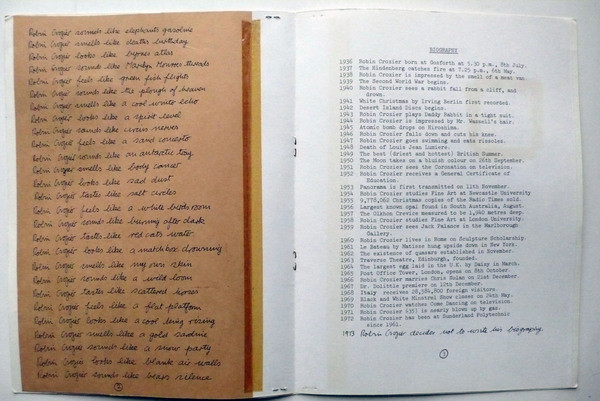 Robin Crozier sounds like elephants gasoline
Robin Crozier smells like deaths birthday
Robin Crozier looks like byones atlas
Robin Crozier sounds like Marilyn Monroes threads
Robin Crozier feels like green fish flights
Robin Crozier sounds like the plough of heaven
Robin Crozier smells like a cool write echo
Robin Crozier looks like a spirit level
Robin Crozier sounds like nerves
Robin Crozier feels like a sand concerto
Robin Crozier sounds like an antarctic
Robin Crozier smells like body cancer
Robin Crozier looks like sad dust
Robin Crozier tastes like salt circles
Robin Crozier feels like a white bathroom
Robin Crozier sounds like burning after dark
Robin Crozier tastes like old cats water
Robin Crozier looks like a matchbox drowning
Robin Crozier smells like my own skin
Robin Crozier sounds like a wild loom
Robin Crozier tastes like scattered
Robin Crozier feels like a flat platform
Robin Crozier looks like a cool king rising
Robin Crozier smells like a gold
Robin Crozier sounds like a snow party
Robin Crozier looks like blank air walls
Robin Crozier sounds like bears silence
2
BIOGRAPHY
1936 Robin Crozier born at Gosforth at 5.30 p.m., 8th July.
1937 The Hindenberg catches fire at 7.25 p.m., 6th May.
1938 Robin Crozier is impressed by the smell of a meat van.
1939 The Second World War begins.
1940 Robin Crozier sees a rabbit fall from a cliff, and
drown.
1941 White Christmas by Irving Berlin first recorded.
1942 Desert Island Discs begins.
1943 Robin Crozier plays Daddy Rabbit in a tight suit.
1944 Robin Crozier is impressed by Mr. Wassell's hair.
1945 Atomic bomb drops on Hiroshima.
1946 Robin Crozier falls down and cuts his knee.
1947 Robin Crozier goes swimming and eats rissoles.
1948 Death of Louis Jean Lumiere.
1949 The best (driest and hottest) British Summer.
1950 The Moon takes on a bluish colour on 26th September.
1951 Robin Crozier sees the Coronation on television.
1952 Robin Crozier receives a General Certificate of
Education.
1953 Panorama is first transmitted on 11th November.
1954 Robin Crozier studies Fine Art at Newcastle University
1955 9,778,062 Christmas copies of the Radio Times sold.
1956 Largest known opal found in South Australia, August.
1957 The Gkhon Crevice measured to be 1,940 metres deep.
1958 Robin Crozier studies Fine Art at London University.
1959 Robin Crozier sees Jack Palance in the Marlborough
Gallery.
1960 Robin Crozier lives in Rome on Sculpture Scholarship.
1961 Le Bateau by Matisse hung upside down in New York.
1962 The existence of quasars established in November.
1963 Traverse Theatre, Edinburgh, founded.
1964 The largest egg laid in the U.K. by Daisy in March.
1965 Post Office Tower, London, opens on 8th October.
1966 Robin Crozier marries Chris Nolan on 21st December.
1967 Dr. Dolittle premiere on 12th December.
1968 Italy receives 28,584,800 foreign visitors.
1969 Black and White Minstrel Show closes on 24th May.
1970 Robin Crozier watches Come Dancing on television.
1971 Robin Crozier (35) is nearly blown up by gas.
1972 Robin Crozier has been at Sunderland Polytechnic
since 1961.
1973 Robin Crozier decides not to write his biography
3